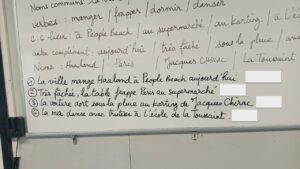 Noms communs : la v
verbes : manger / frapper / dormir / danser
c.c lieu : à People Beach / au supermarché / au karting / à l'é
autre complément : aujourd'hui / très fâché / sous la pluie / avec
Noms : Haaland / Paris / Jacques Chirac / La Toussaint
① La ville mange Haaland à People Beach aujourd'hui
② Très fâchée, la table frappe Paris au supermarché
③ la voiture dort sous la pluie au karting de Jacques Chirac
④ la mer danse avec tristesse à l'école de la Toussaint.